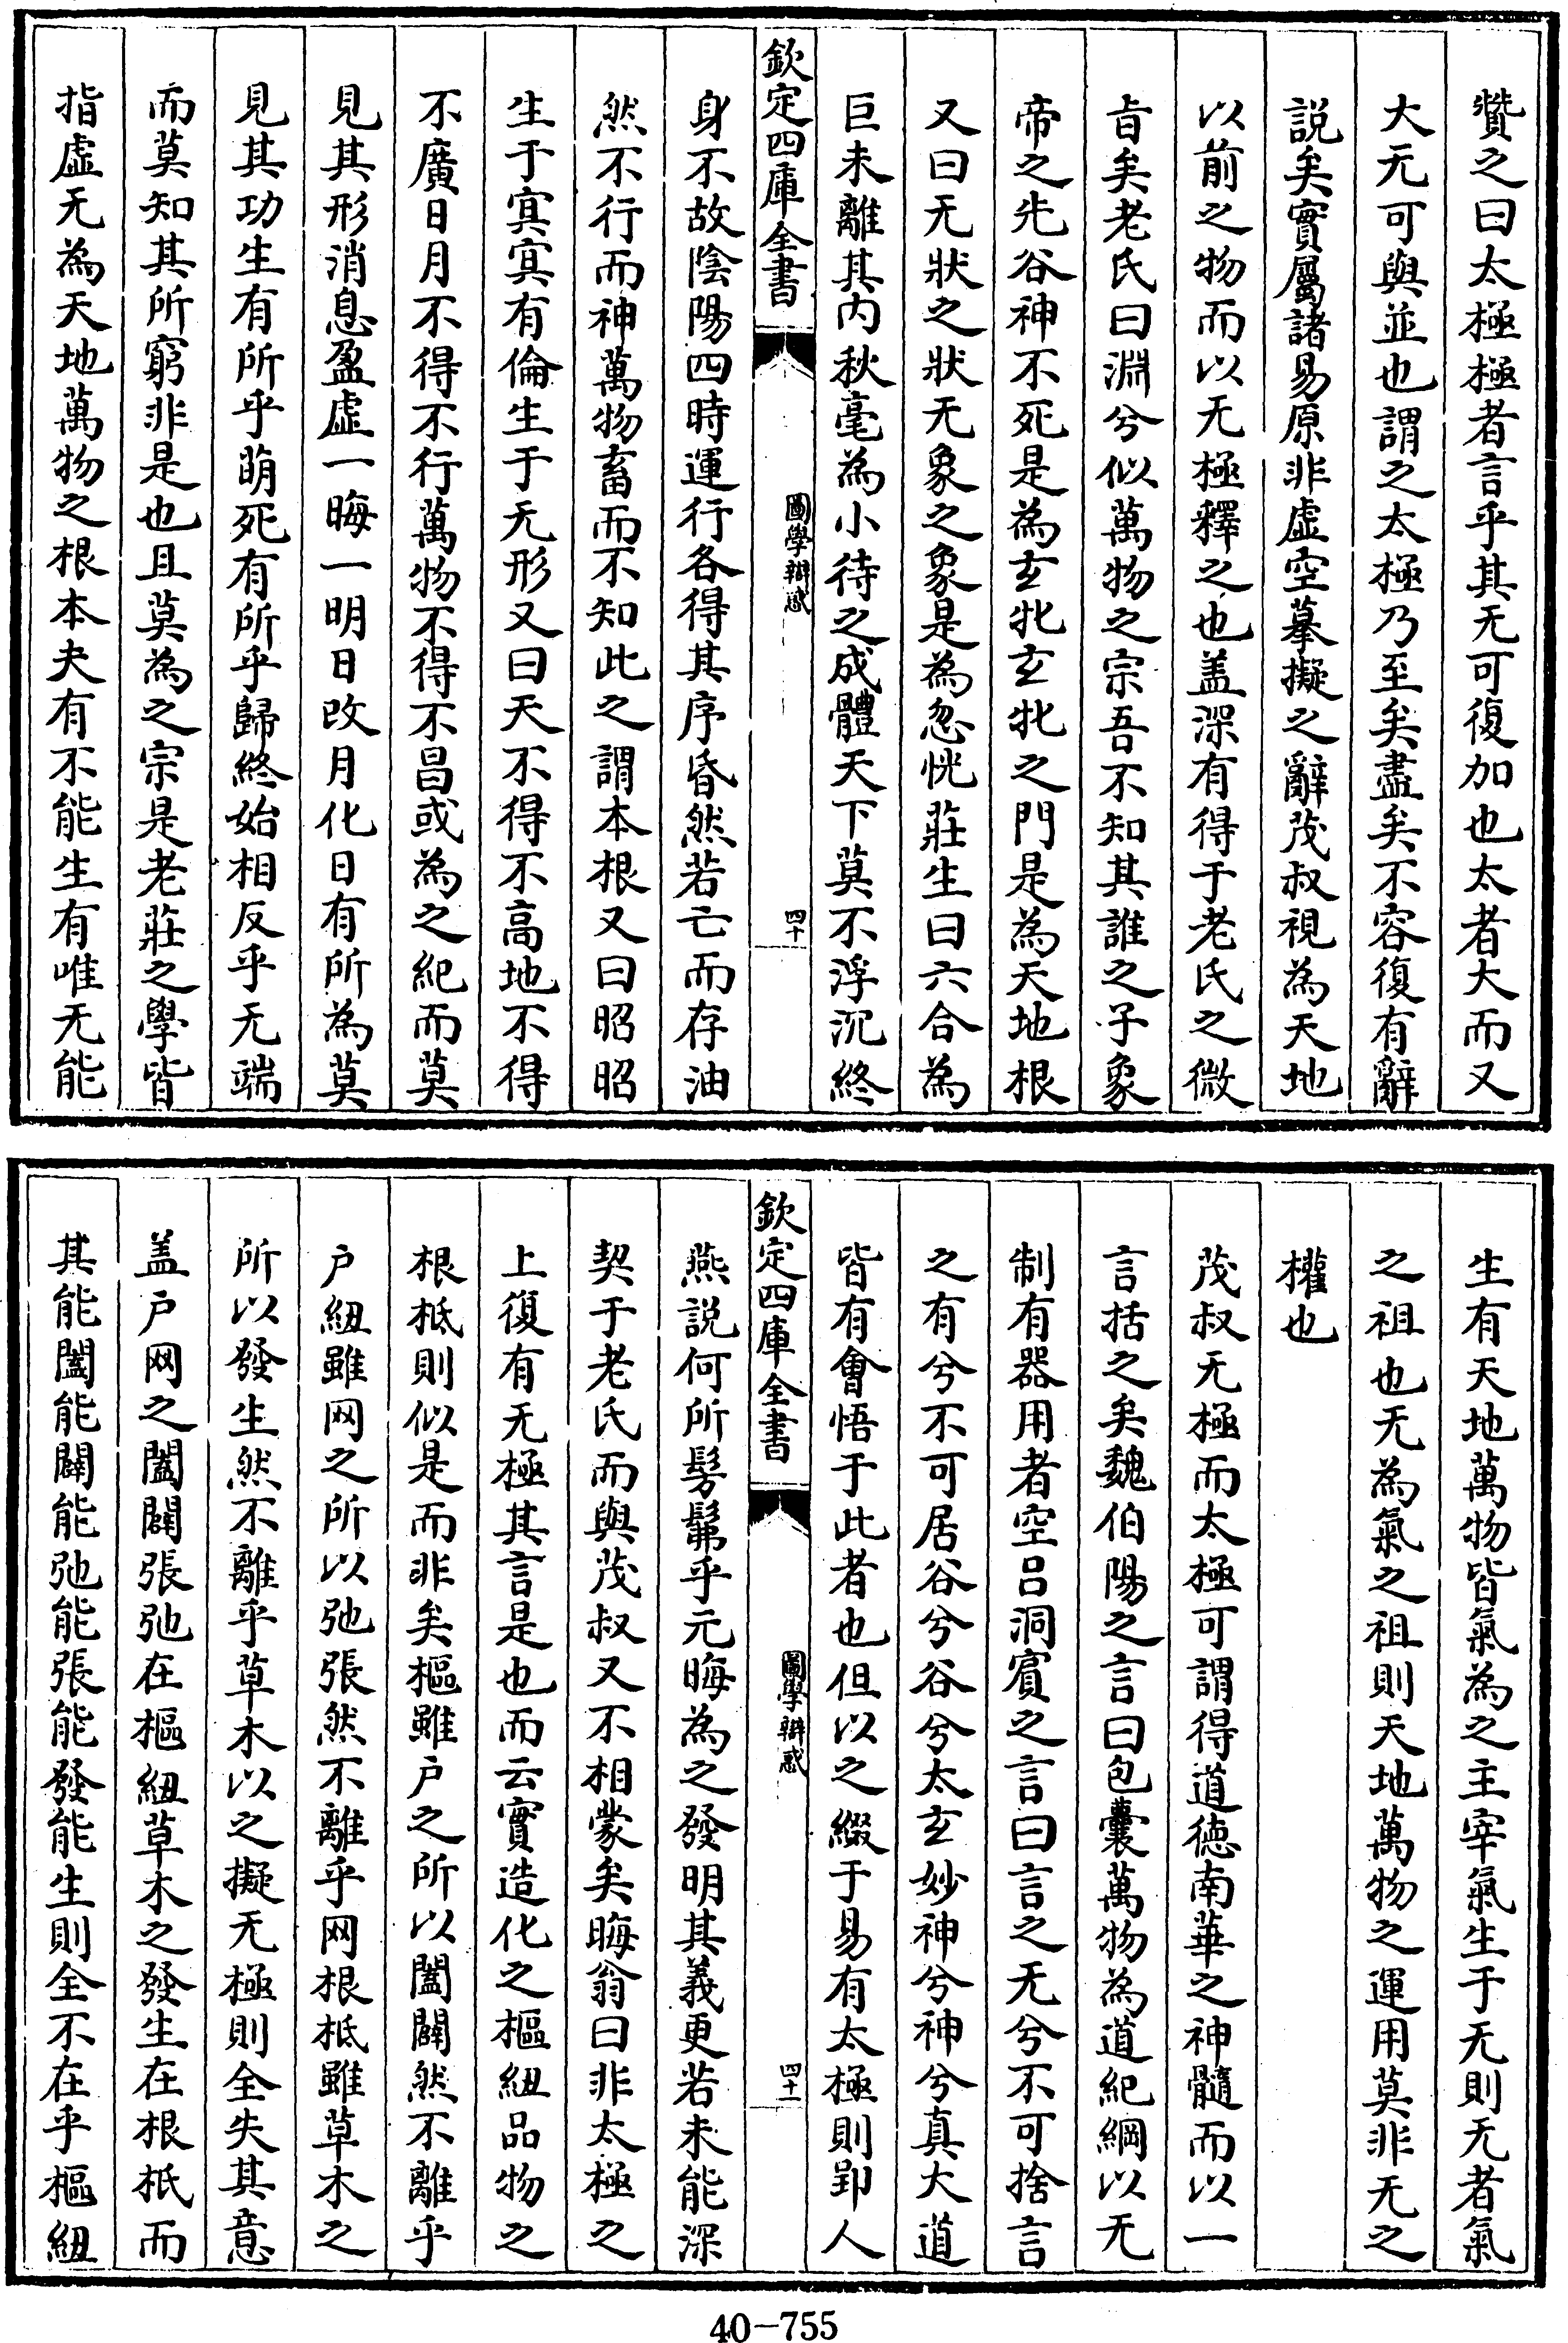 贊之曰太極極者言乎其无可復加也太者大而又
大无可與並也謂之太極乃至矣盡矣不容復有辭
說矣實屬諸易原非虛空摹擬之辭茂叔視為天地
以前之物而以无極釋之也盖深有得于老氏之微
旨矣老氏曰淵兮似萬物之宗吾不知其誰之子象
帝之先谷神不死是為玄牝玄牝之門是為天地根
又曰无狀之狀无象之象是為忽恍莊生曰六合為
巨未離其内秋毫為小待之成體天下莫不浮沉終
欽定四庫全書
圖學辯惑
四十
身不故陰陽四時運行各得其序昏然若亡而存油
然不行而神萬物畜而不知此之謂本根又曰昭昭
生于㝠㝠有倫生于无形又曰天不得不高地不得
不廣日月不得不行萬物不得不昌或為之紀而莫
見其形消息盈虛一晦一明日改月化日有所為莫
見其功生有所乎萌死有所乎歸終始相反乎无端
而莫知其所窮非是也且莫為之宗是老莊之學皆
指虛无為天地萬物之根本夫有不能生有唯无能
生有天地萬物皆氣為之主宰氣生于无則无者氣
之祖也无為氣之祖則天地萬物之運用莫非无之
權也
茂叔无極而太極可謂得道徳南華之神髓而以一
言括之矣魏伯陽之言曰包囊萬物為道紀綱以无
制有器用者空吕洞賓之言曰言之无兮不可捨言
之有兮不可居谷兮谷兮太玄妙神兮神兮真大道
皆有會悟于此者也但以之綴于易有太極則郢人
欽定四庫全書
圖學辯惑
四十一
燕說何所髣髴乎元晦為之發明其義更若未能深
契于老氏而與茂叔又不相蒙矣晦翁曰非太極之
上復有无極其言是也而云實造化之樞紐品物之
根柢則似是而非矣樞雖户之所以闔闢然不離乎
户紐雖网之所以弛張然不離乎网根柢雖草木之
所以發生然不離乎草木以之擬无極則全失其意
盖户网之闔闢張弛在樞紐草木之發生在根柢而
其能闔能闢能弛能張能發能生則全不在乎樞紐
40-755